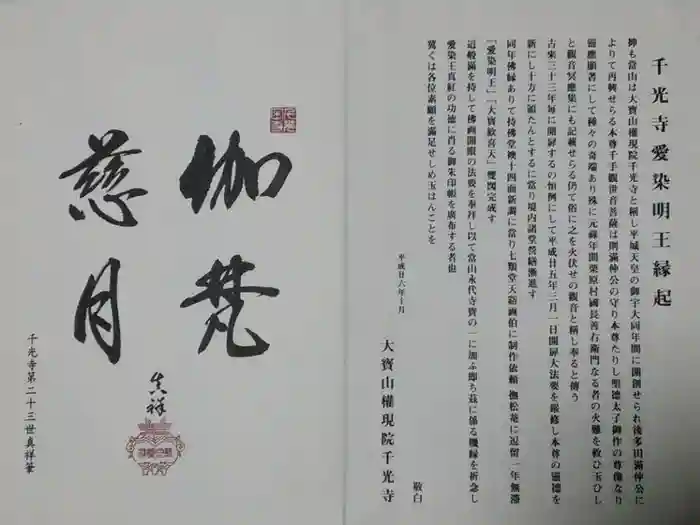 千光寺愛染明王縁起
抑も當山は大寶山權現院千光寺と稱し平城天皇の御宇大同年間に開創せられ後多田滿仲公に
よりて再興せらる本尊千手觀世音菩薩は則滿仲公の守り本尊たりし聖德太子御作の尊像なり
靈應顯著にして種々の奇瑞あり殊に元祿年間栗原村國長善右衛門なる者の火難を救ひ玉ひし
と觀音冥應集にも記載せらる仍て俗に之を火伏せの觀音と稱し奉ると傳う
古來三十三年毎に開扉するの恒例にして平成廿五年三月一日開扉大法要を嚴修し本尊の靈德を
新にし十方に頒たんとするに當り境内諸堂營繕漸進す
同年佛縁ありて持佛堂襖十四面新調に當り七類堂天谿画伯に制作依頼 撫松菴に逗留一年無滯
「愛染明王」「大寶歓喜天」雙圖完成す
這般滿を持して佛画開眼の法要を奉祥し以て當山永代寺寶の一に加ふ即ち茲に係る機縁を祈念し
愛染王真紅の功德に肖る御朱印帳を廣布する者也
冀くは各位素願を滿足せしめ玉はんことを
平成廿六年十月
大寶山權現院千光寺
敬白
伽梵
慈月
真祥
千光寺第二十三世真祥筆